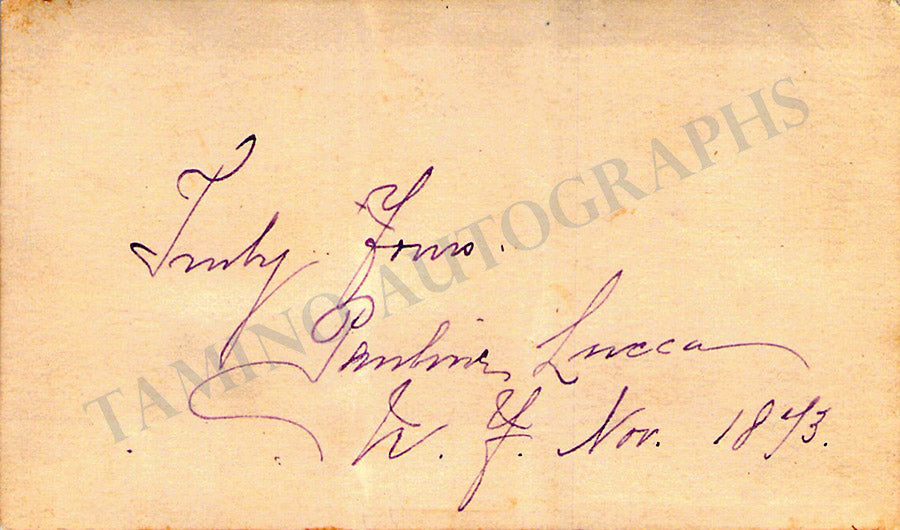 Truly Yours.
Pauline Lucca
N. Y. Nov. 1873.
TAMINO AUTOGRAPHS